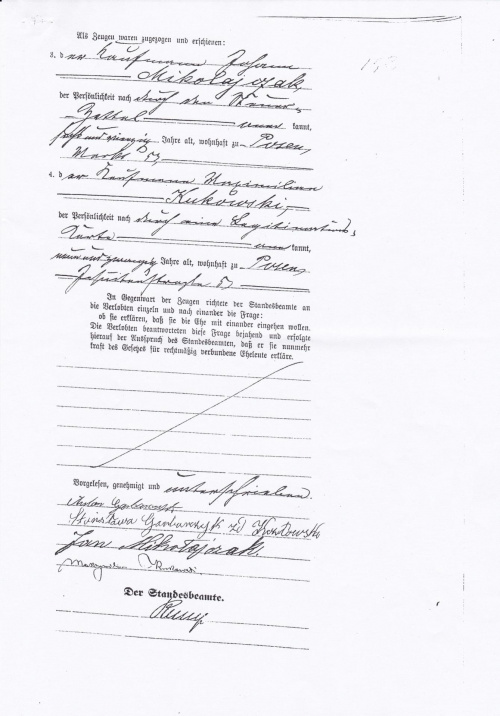 Als Zeugen waren zugezogen und erschienen:
3. der Kaufmann Johann
Mikolajczak,
der Persönlichkeit nach durch den Steuer-
Zettel anerkannt,
Jahre alt, wohnhaft zu Posen,
Markt 53,
4. der Kaufmann Maximilian
Kukowski,
der Persönlichkeit nach durch eine Legitimations-
Karte anerkannt,
neunundzwanzig Jahre alt, wohnhaft zu Posen,
In Gegenwart der Zeugen richtete der Standesbeamte an
die Verlobten einzeln und nach einander die Frage:
ob sie erklären, daß sie die Ehe mit einander eingehen wollen.
Die Verlobten beantworteten diese Frage bejahend und erfolgte
hierauf der Ausspruch des Standesbeamten, daß er sie nunmehr
kraft des Gesetzes für rechtmäßig verbundene Eheleute erkläre.
Vorgelesen, genehmigt und unterschrieben.
Stanisława Garbarczyk zd Kozłowski
Jan Mikołajczak.
Der Standesbeamte.